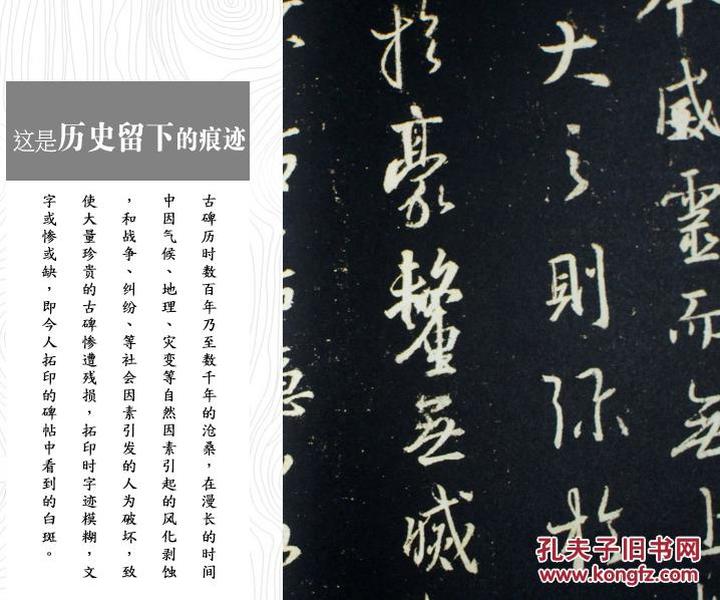 这是历史留下的痕迹
古碑历时数百年乃至数千年的沧桑，在漫长的时间
中因气候、地理、灾变等自然因素引起的风化剥蚀
，和战争、纠纷、等社会因素引发的人为破坏，致
使大量珍贵的古碑惨遭残损，拓印时字迹模糊，文
字或惨或缺，即今人拓印的碑帖中看到的白斑。
威靈而無上
大之則弥於
於豪釐無滅
孔夫子旧书网
www.kongfz.com